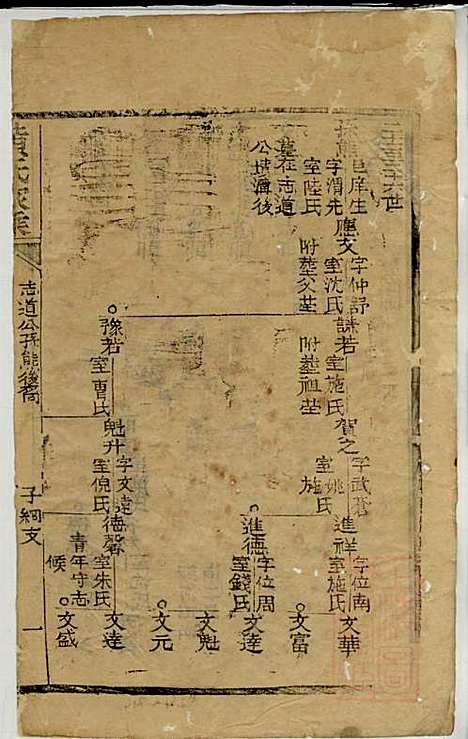 孫能
邑庠生
字渭先
室陸氏
墓在志道
公墳濟後
應文
字仲舒
室沈氏
附塟父茔
謙若
室施氏
附塟祖茔
賀之
字武蒼
室姚氏
施氏
進祥
字位南
室施氏
文華
文富
進德
字位周
室錢氏
文達
文魁
文元
豫若
室曹氏
魁升
字文遠
室倪氏
德馨
室朱氏
青年守志
候
文達
文盛
黄氏家乘
志道公孫能後裔
子綱支
一